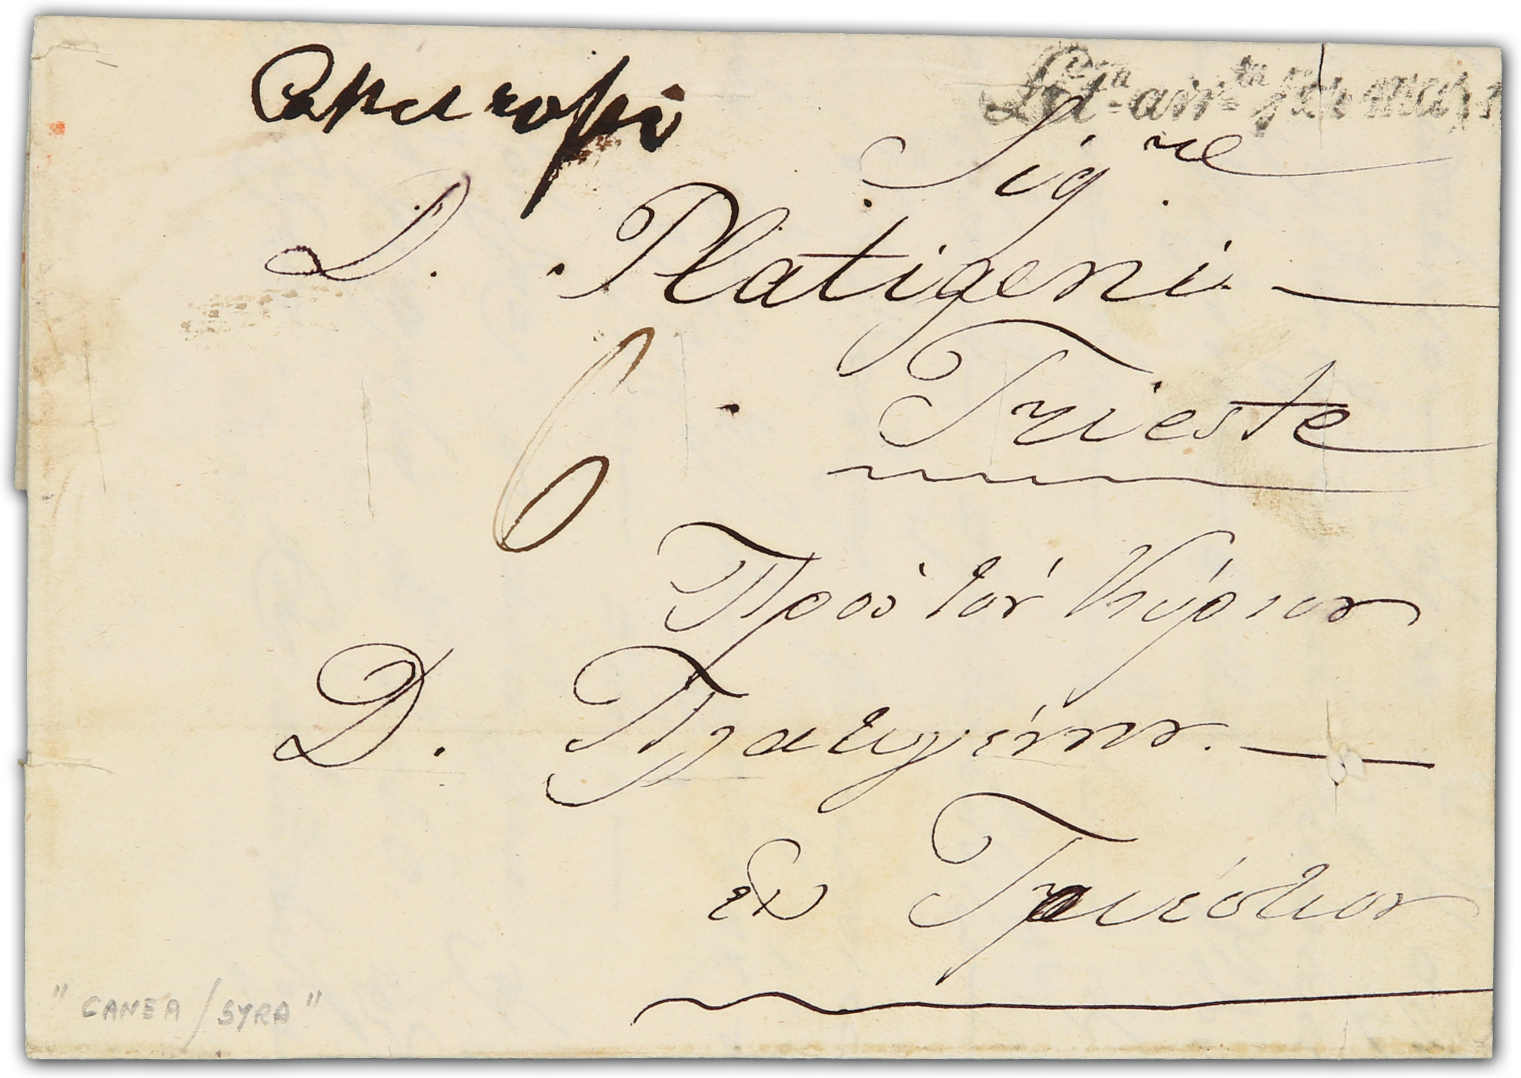 Lettere arrte per mare
Sigre
D. Platigeni
Trieste
6
Πρὸς τὸν Κύριον
D. Πλατυγένην.
εἰς Τριέστιον
"CANEA/SYRA"